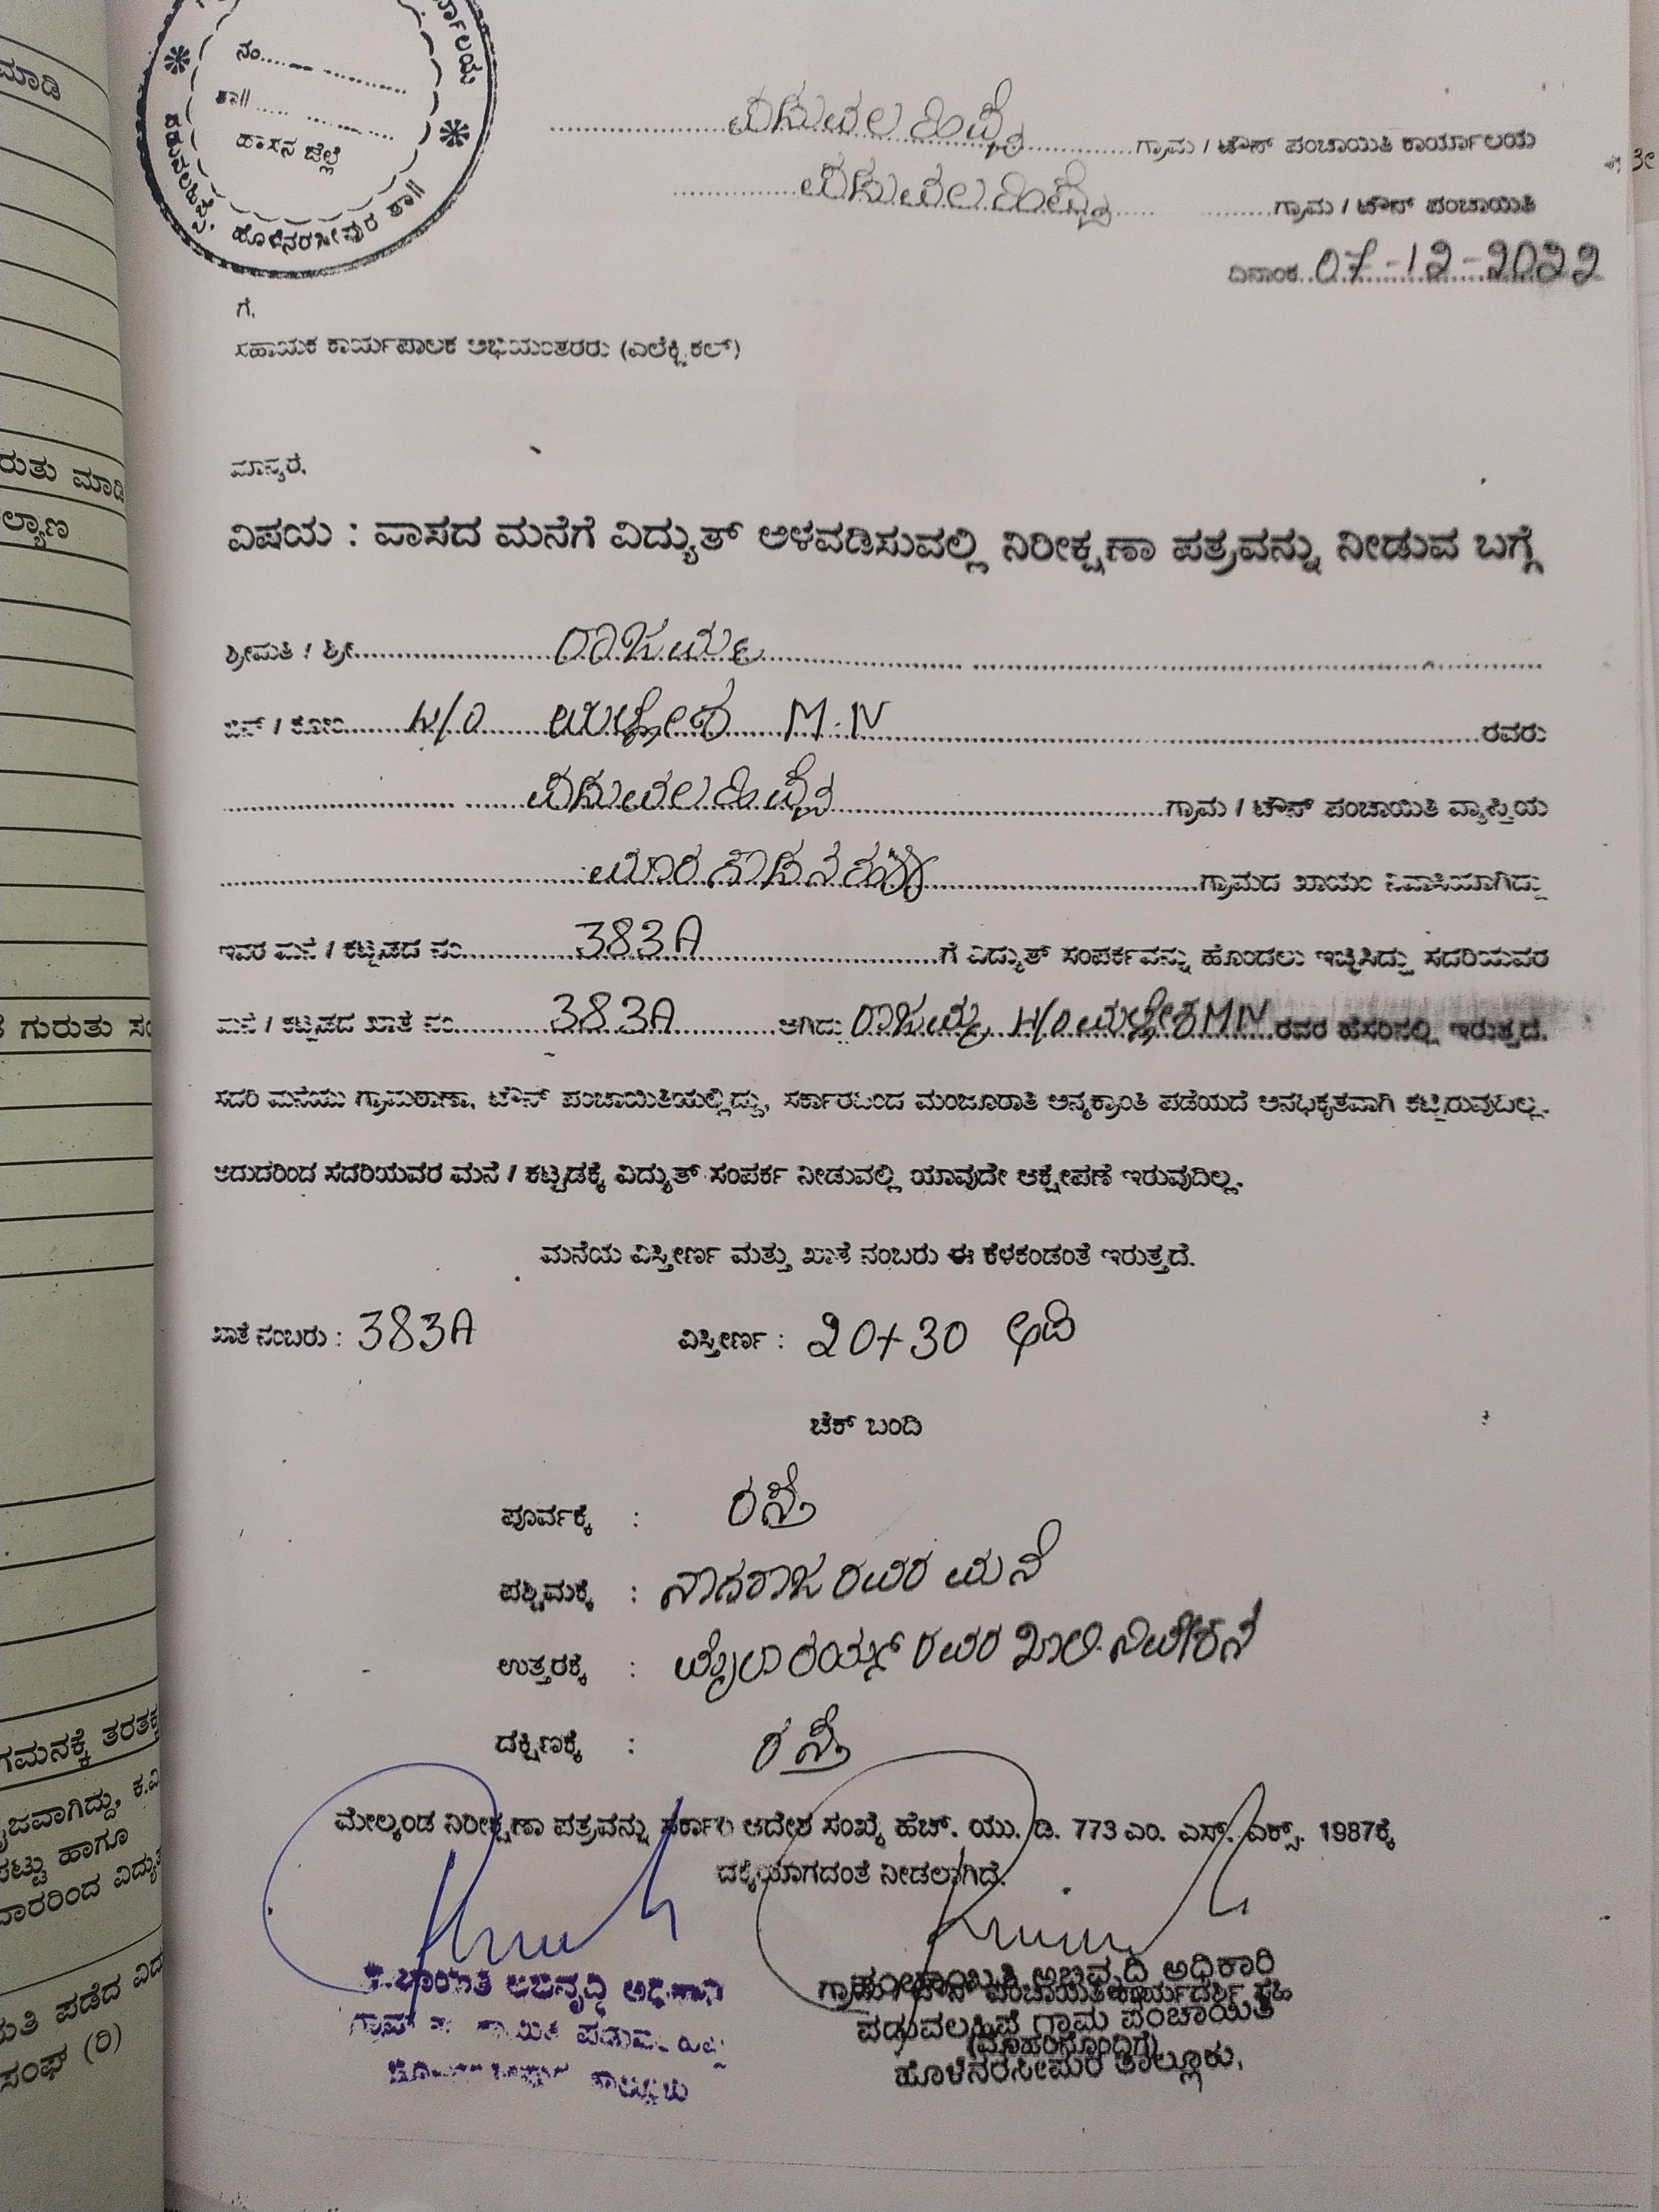 ಮಾಡಿ
ರುತು ಮಾಡಿ
ಲ್ಯಾಣ
ಗುರುತು ಸಂ
ಗಮನಕ್ಕೆ ತರತಕ್ಕ
ಜವಾಗಿದ್ದು, ಕ.ವಿ
ಕಟ್ಟು ಹಾಗೂ
ದಾರರಿಂದ ವಿದ್ಯುತ
ಮತಿ ಪಡೆದ ವಿದ
ಸಂಘ (ರಿ)
ನಂ
ತಾ||
ಹಾಸನ ಜಿಲ್ಲೆ
ಪಡುವಲಹಿಪ್ಪೆ, ಹೊಳೆನರಸೀಪುರ ತಾ||
ಪಡುವಲಹಿಪ್ಪೆ ಗ್ರಾಮ / ಟೌನ್ ಪಂಚಾಯಿತಿ ಕಾರ್ಯಾಲಯ
ಪಡುವಲಹಿಪ್ಪೆ ಗ್ರಾಮ / ಟೌನ್ ಪಂಚಾಯಿತಿ
ದಿನಾಂಕ 07-12-2022
ಗೆ,
ಸಹಾಯಕ ಕಾರ್ಯಪಾಲಕ ಅಭಿಯಂತರರು (ಎಲೆಕ್ಟ್ರಿಕಲ್)
ಮಾನ್ಯರೆ,
ವಿಷಯ : ವಾಸದ ಮನೆಗೆ ವಿದ್ಯುತ್ ಅಳವಡಿಸುವಲ್ಲಿ ನಿರೀಕ್ಷಣಾ ಪತ್ರವನ್ನು ನೀಡುವ ಬಗ್ಗೆ
ಶ್ರೀಮತಿ / ಶ್ರೀ ರಾಜಮ್ಮ
ಬಿನ್ / ಕೋಂ W/O ಮಲ್ಲೇಶ M.N ರವರು
ಪಡುವಲಹಿಪ್ಪೆ ಗ್ರಾಮ / ಟೌನ್ ಪಂಚಾಯಿತಿ ವ್ಯಾಪ್ತಿಯ
ಮಾರಗೌಡನಹಳ್ಳಿ ಗ್ರಾಮದ ಖಾಯಂ ನಿವಾಸಿಯಾಗಿದ್ದು
ಇವರ ಮನೆ / ಕಟ್ಟಡದ ನಂ 383A ಗೆ ವಿದ್ಯುತ್ ಸಂಪರ್ಕವನ್ನು ಹೊಂದಲು ಇಚ್ಛಿಸಿದ್ದು ಸದರಿಯವರ
ಮನೆ / ಕಟ್ಟಡದ ಖಾತೆ ನಂ 383A ಆಗಿದ್ದು ರಾಜಮ್ಮ W/O ಮಲ್ಲೇಶ M N ರವರ ಹೆಸರಿನಲ್ಲಿ ಇರುತ್ತದೆ.
ಸದರಿ ಮನೆಯು ಗ್ರಾಮಠಾಣಾ, ಟೌನ್ ಪಂಚಾಯಿತಿಯಲ್ಲಿದ್ದು, ಸರ್ಕಾರದಿಂದ ಮಂಜೂರಾತಿ ಅನ್ಯಕ್ರಾಂತಿ ಪಡೆಯದೆ ಅನಧಿಕೃತವಾಗಿ ಕಟ್ಟಿರುವುದಿಲ್ಲ.
ಆದುದರಿಂದ ಸದರಿಯವರ ಮನೆ / ಕಟ್ಟಡಕ್ಕೆ ವಿದ್ಯುತ್ ಸಂಪರ್ಕ ನೀಡುವಲ್ಲಿ ಯಾವುದೇ ಆಕ್ಷೇಪಣೆ ಇರುವುದಿಲ್ಲ.
ಮನೆಯ ವಿಸ್ತೀರ್ಣ ಮತ್ತು ಖಾತೆ ನಂಬರು ಈ ಕೆಳಕಂಡಂತೆ ಇರುತ್ತದೆ.
ಖಾತೆ ನಂಬರು : 383A ವಿಸ್ತೀರ್ಣ : 20+30 ಅಡಿ
ಚೆಕ್ ಬಂದಿ
ಪೂರ್ವಕ್ಕೆ : ರಸ್ತೆ
ಪಶ್ಚಿಮಕ್ಕೆ : ನಾಗರಾಜ ರವರ ಮನೆ
ಉತ್ತರಕ್ಕೆ : ಮೈಲಾರಯ್ಯ ರವರ ಖಾಲಿ ನಿವೇಶನ
ದಕ್ಷಿಣಕ್ಕೆ : ರಸ್ತೆ
ಮೇಲ್ಕಂಡ ನಿರೀಕ್ಷಣಾ ಪತ್ರವನ್ನು ಸರ್ಕಾರಿ ಆದೇಶ ಸಂಖ್ಯೆ ಹೆಚ್. ಯು. ಡಿ. 773 ಎಂ. ಎಸ್. ಎಕ್ಸ್. 1987ಕ್ಕೆ
ದಕ್ಕೆಯಾಗದಂತೆ ನೀಡಲಾಗಿದೆ.
ಪಂಚಾಯಿತಿ ಅಭಿವೃದ್ಧಿ ಅಧಿಕಾರಿ
ಗ್ರಾಮ / ಟೌನ್ ಪಂಚಾಯಿತಿ ಕಾರ್ಯದರ್ಶಿ ಸಹಿ
ಪಡುವಲಹಿಪ್ಪೆ ಗ್ರಾಮ ಪಂಚಾಯಿತಿ
(ಮೊಹರಿನೊಂದಿಗೆ)
ಹೊಳೆನರಸೀಪುರ ತಾಲ್ಲೂಕು.